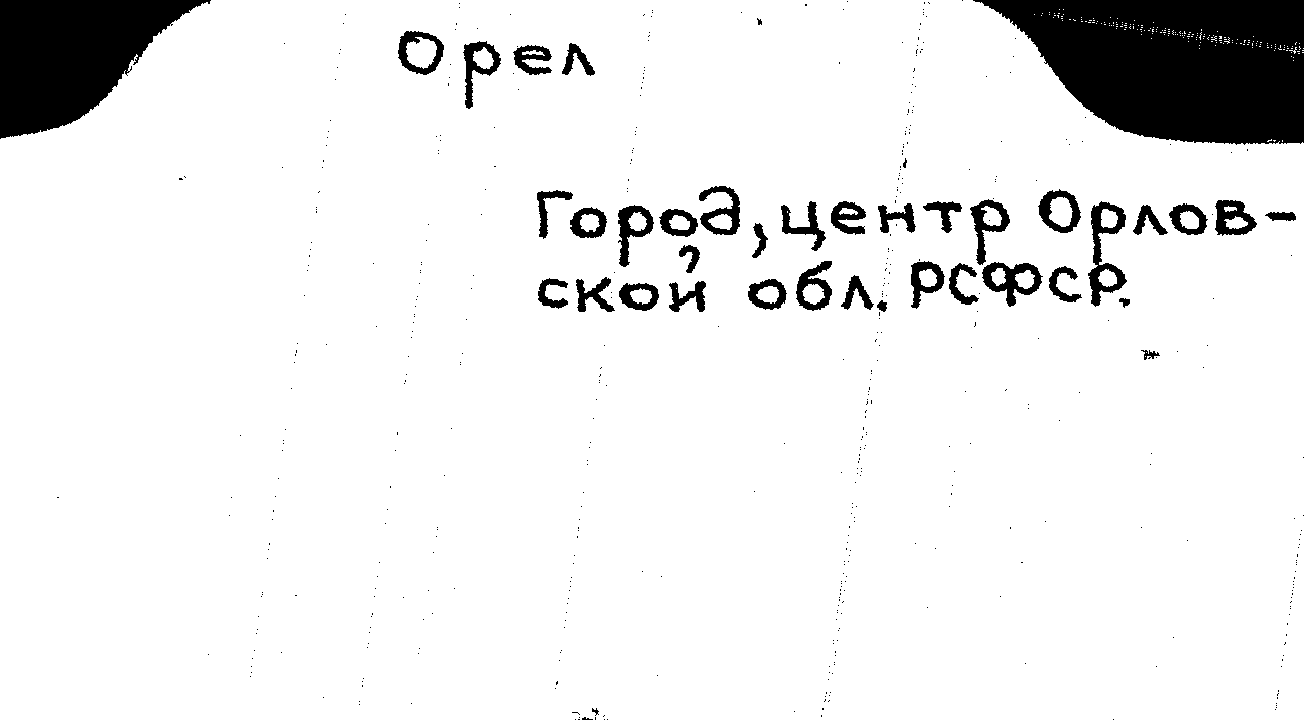 Орел
Город, центр Орлов-
ской обл. РСФСР.